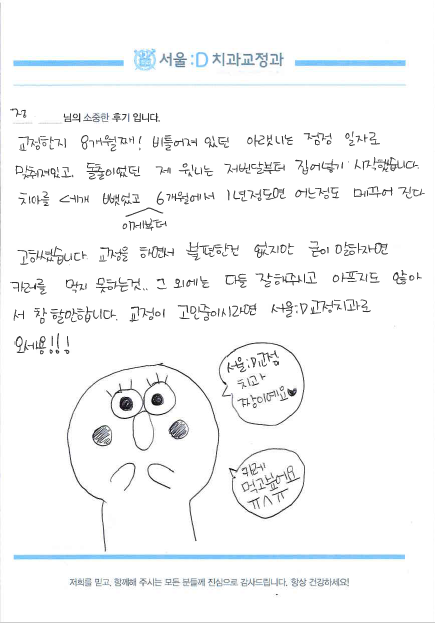 서울:D 치과교정과
정 님의 소중한 후기 입니다.
교정한지 8개월째! 비틀어져 있던 아랫니는 점점 일자로
맞춰져있고, 돌출이었던 제 윗니는 저번달부터 집어넣기 시작했습니다.
치아를 세개 뺐었고 6개월에서 1년정도면 어느정도 메꾸어 진다
이제부터
고하셨습니다. 교정을 하면서 불편한건 없지만 굳이 말하자면
카레를 먹지 못하는것.. 그 외에는 다들 잘해주시고 아프지도 않아
서 참 할만합니다. 교정이 고민중이시라면 서울:D교정치과로
오세용!!!
서울:D교정
치과
짱이예요♥
카레
먹고싶어요
ㅠㅅㅠ
저희를 믿고, 함께해 주시는 모든 분들께 진심으로 감사드립니다. 항상 건강하세요!